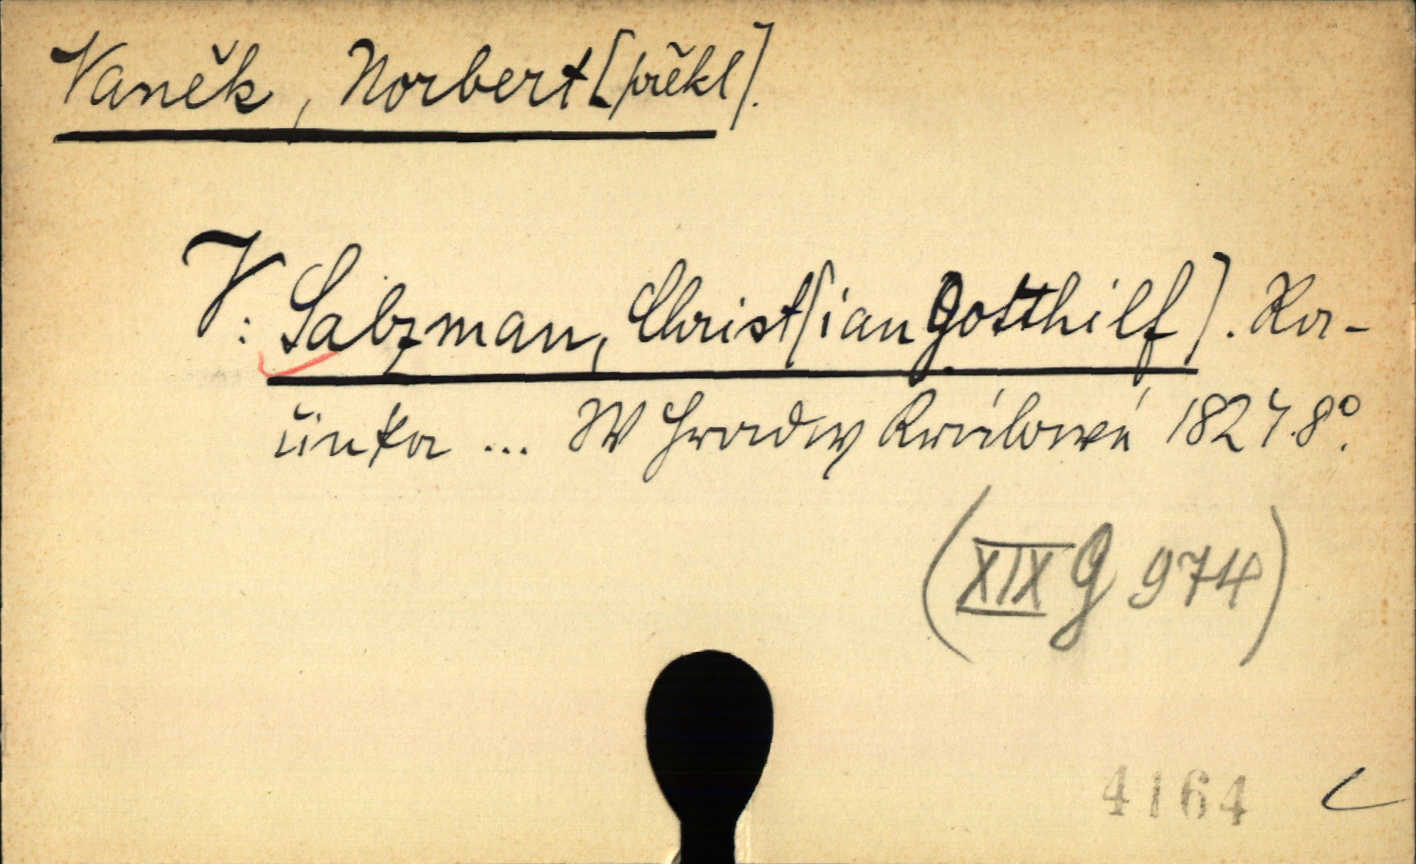 Vaněk, Norbert [překl].
V: Salzman, Christ[ian Gotthilf]. Ra-
ünka ... W Hradcy Králowé 1827. 8°.
(XIX G 974)
4164